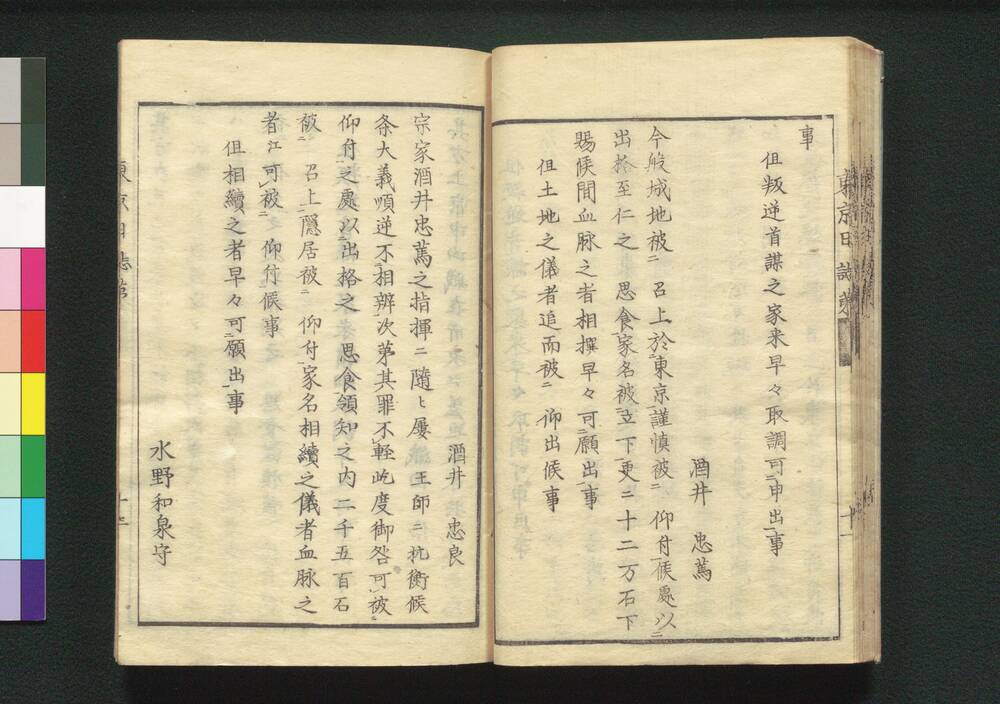 事
但叛逆首謀之家来早々取調可申出事
酒井　忠篤
今般城地被二　召上於東京謹慎被二　仰付候處以二
出格至仁之　思食家名被立下更ニ十二万石下
賜候間血脉之者相撰早々可願出事
但土地之儀者追而被二　仰出候事
十一
酒井　忠良
宗家酒井忠篤之指揮ニ隨ヒ屢　王師ニ抗衡候
条大義順逆不相辨次第其罪不輕屹度御咎可被二
仰付之處以出格之　思食領知之内二千五百石
被二　召上隱居被二　仰付家名相續之儀者血脉之
者江可被二　仰付候事
但相續之者早々可願出事
水野和泉守